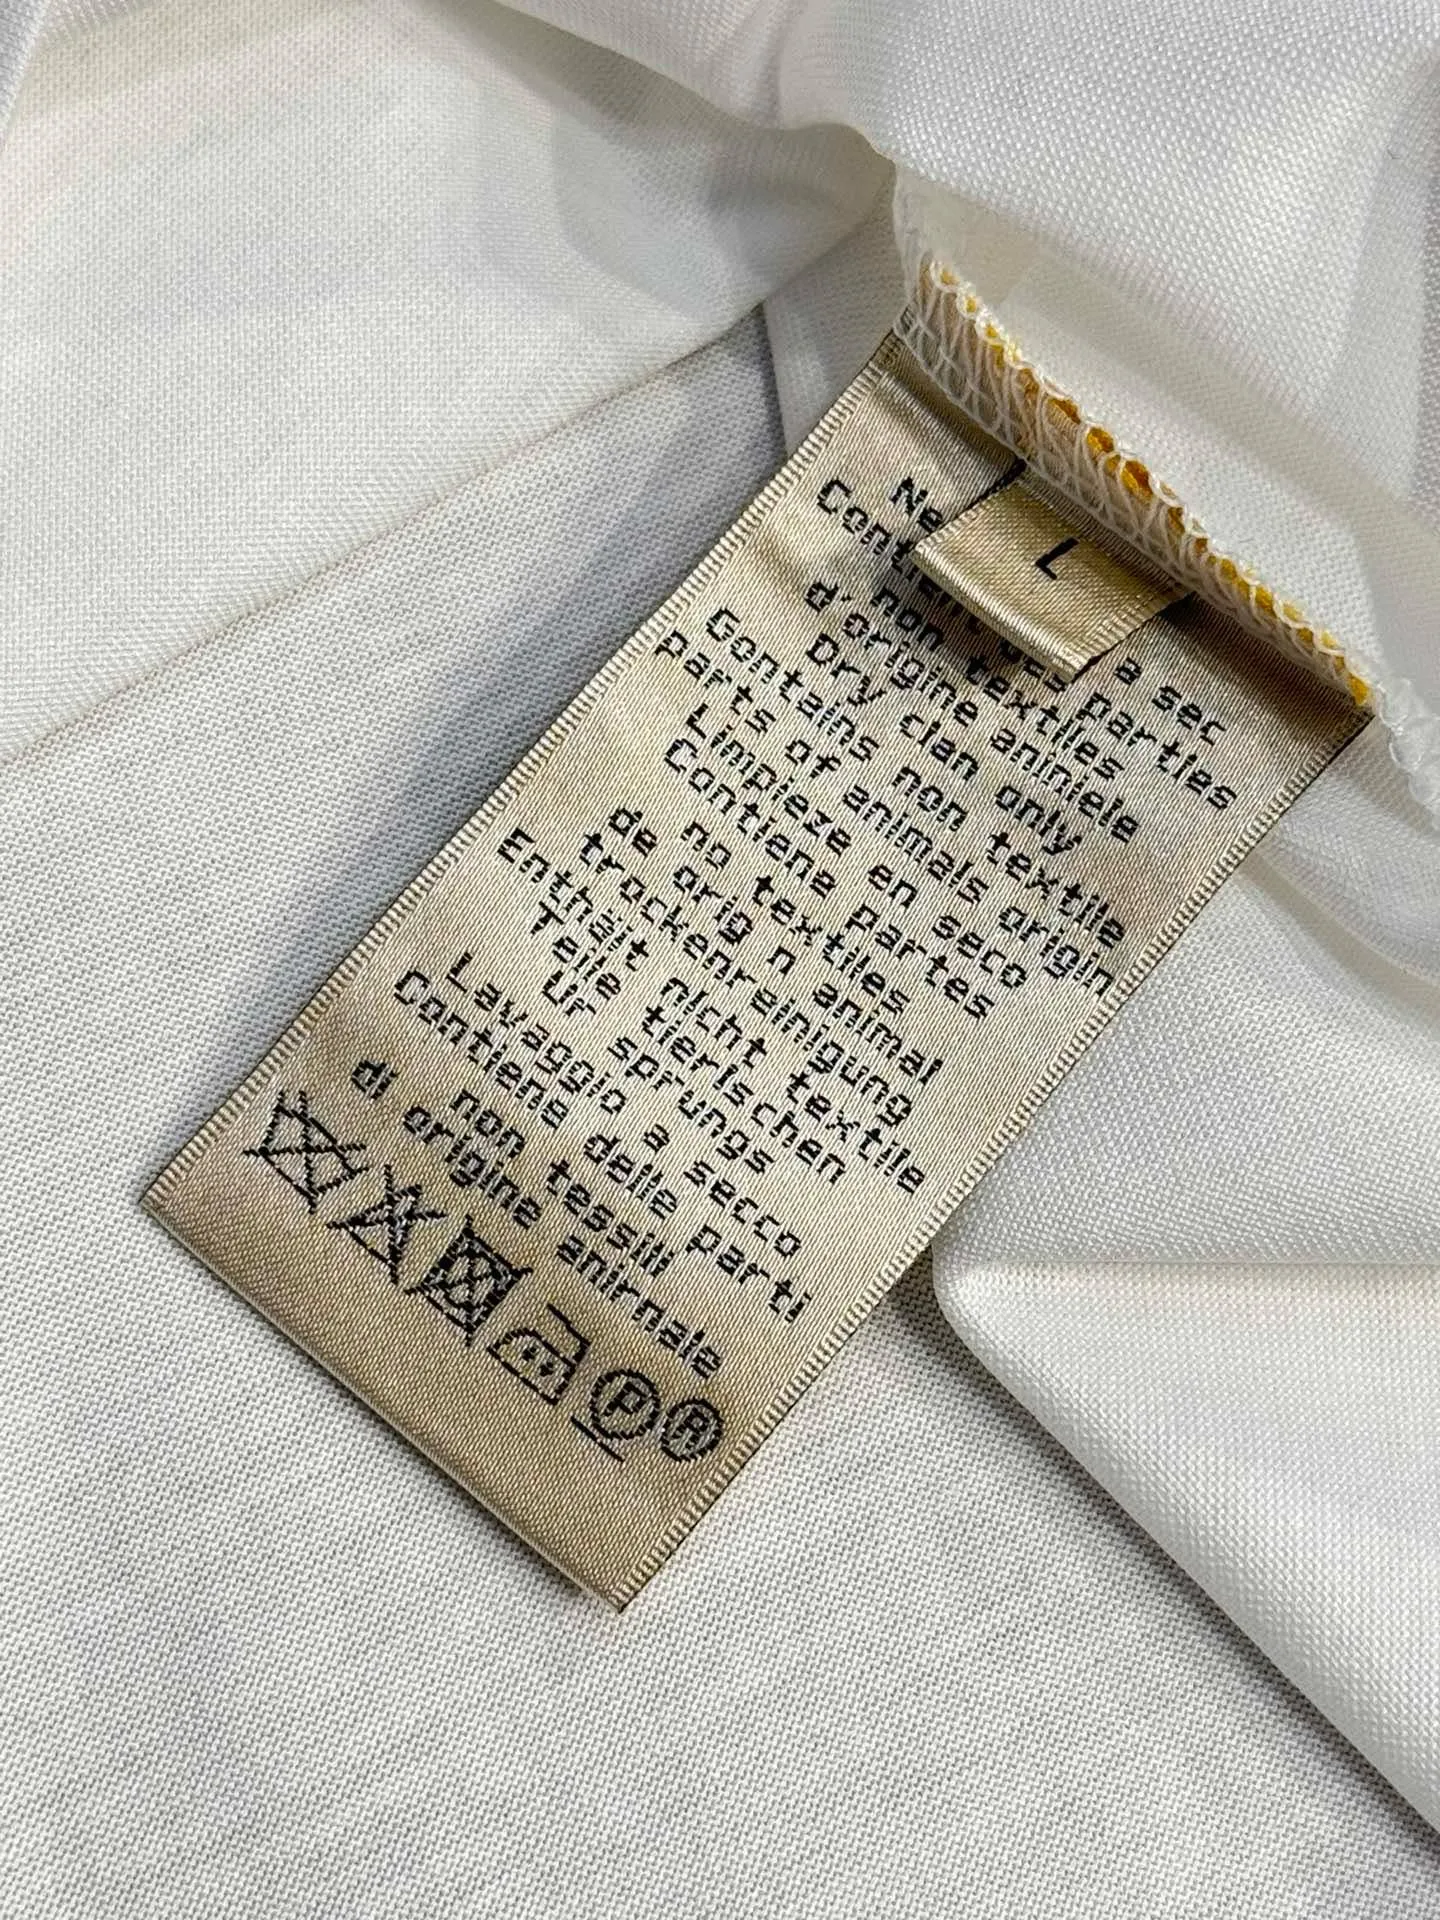 L
Ne a sec
Contient des parties
non textiles
d'origine aniniele
Dry clan only
Gontains non textile
parts of animals origin
Limpieze en seco
Contiene partes
de no textiles
de orig n animal
trockenreinigung
Enthält nicht textile
Teile tierischen
Ur sprungs
Lavaggio a secco
Contiene delle parti
non tessili
di origine anirnale
P R